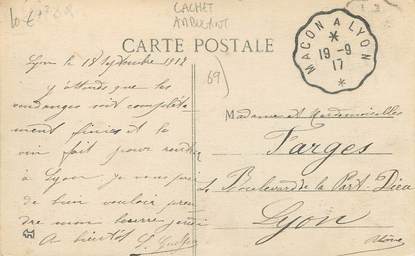 CACHET
AMBULANT
CARTE POSTALE
MACON A LYON
19-9
17
69
Lyon le 18 septembre 1917
j'attends que les
vendanges soit complète
ment finies et le
vin fait pour rentrer
à Lyon je vous prie
de bien vouloir pren
dre mon beurre jeudi
A bientôt
Madame et Mesdemoiselles
Farges
Boulevard de la Part-Dieu
Lyon
Rhône